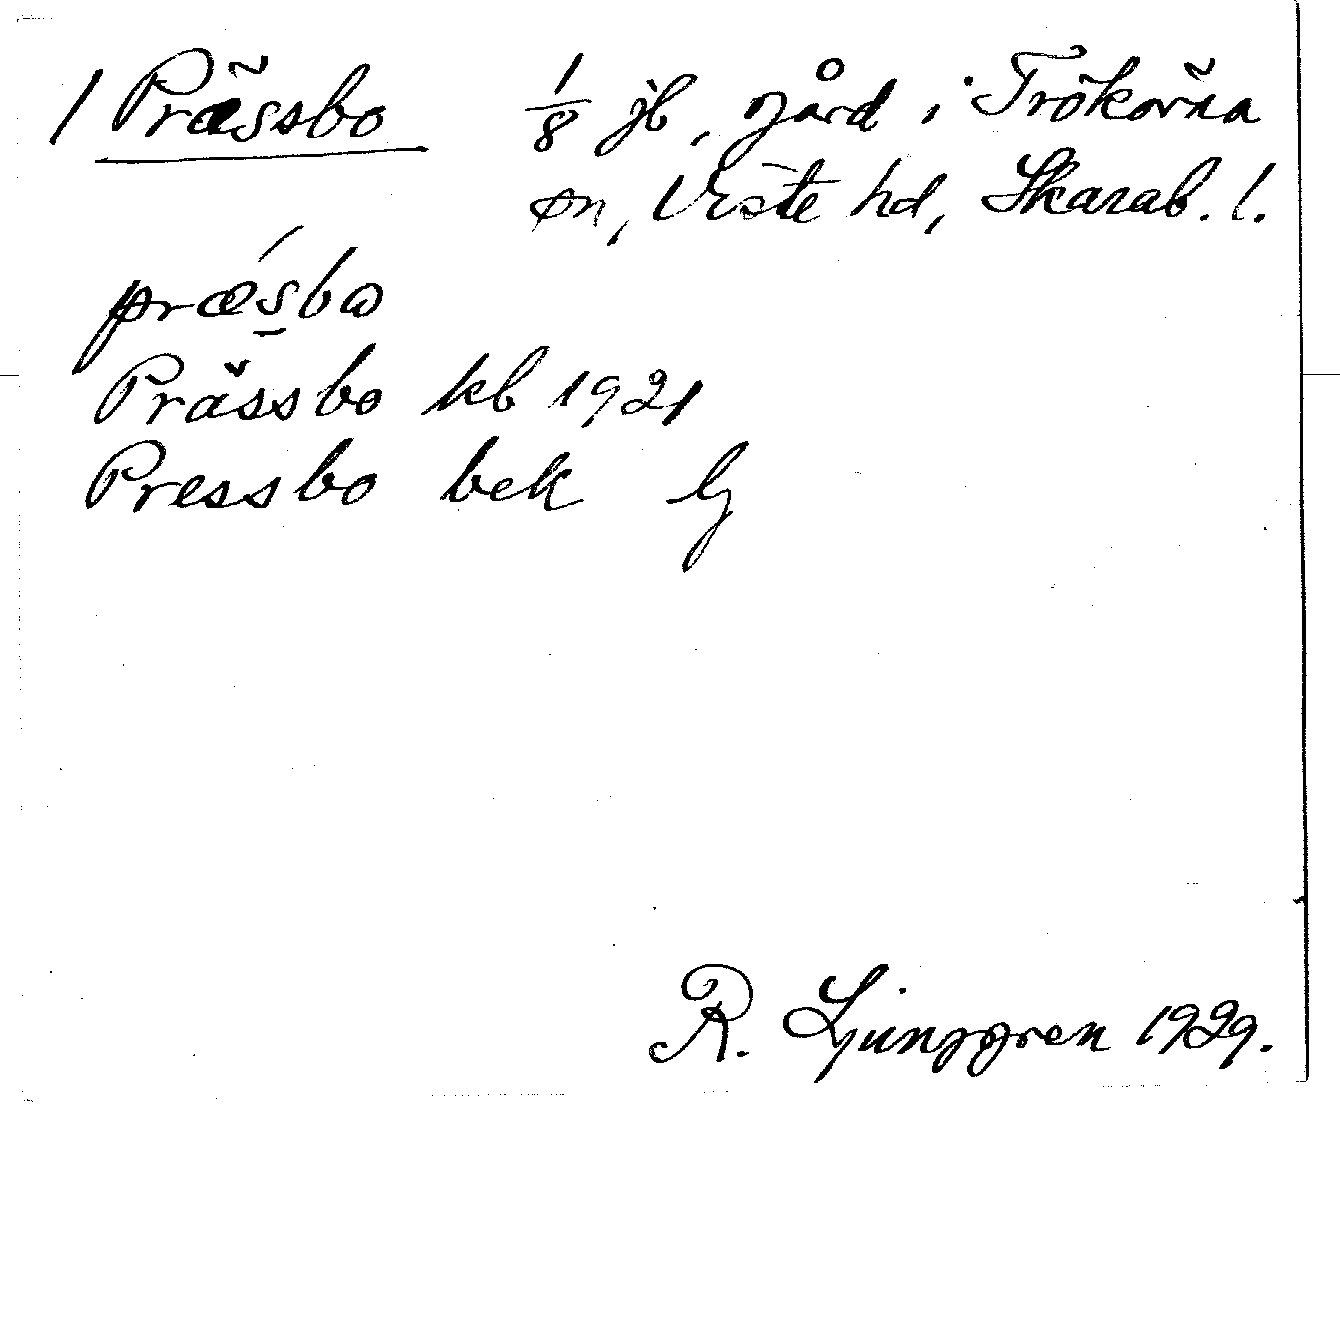 1 Prässbo 1/8 jb, gård i Trökörna
sn, Viste hd, Skarab. l.
præ´sbω
Prässbo kb 1921
Pressbo bek lj
R. Ljunggren 1929.